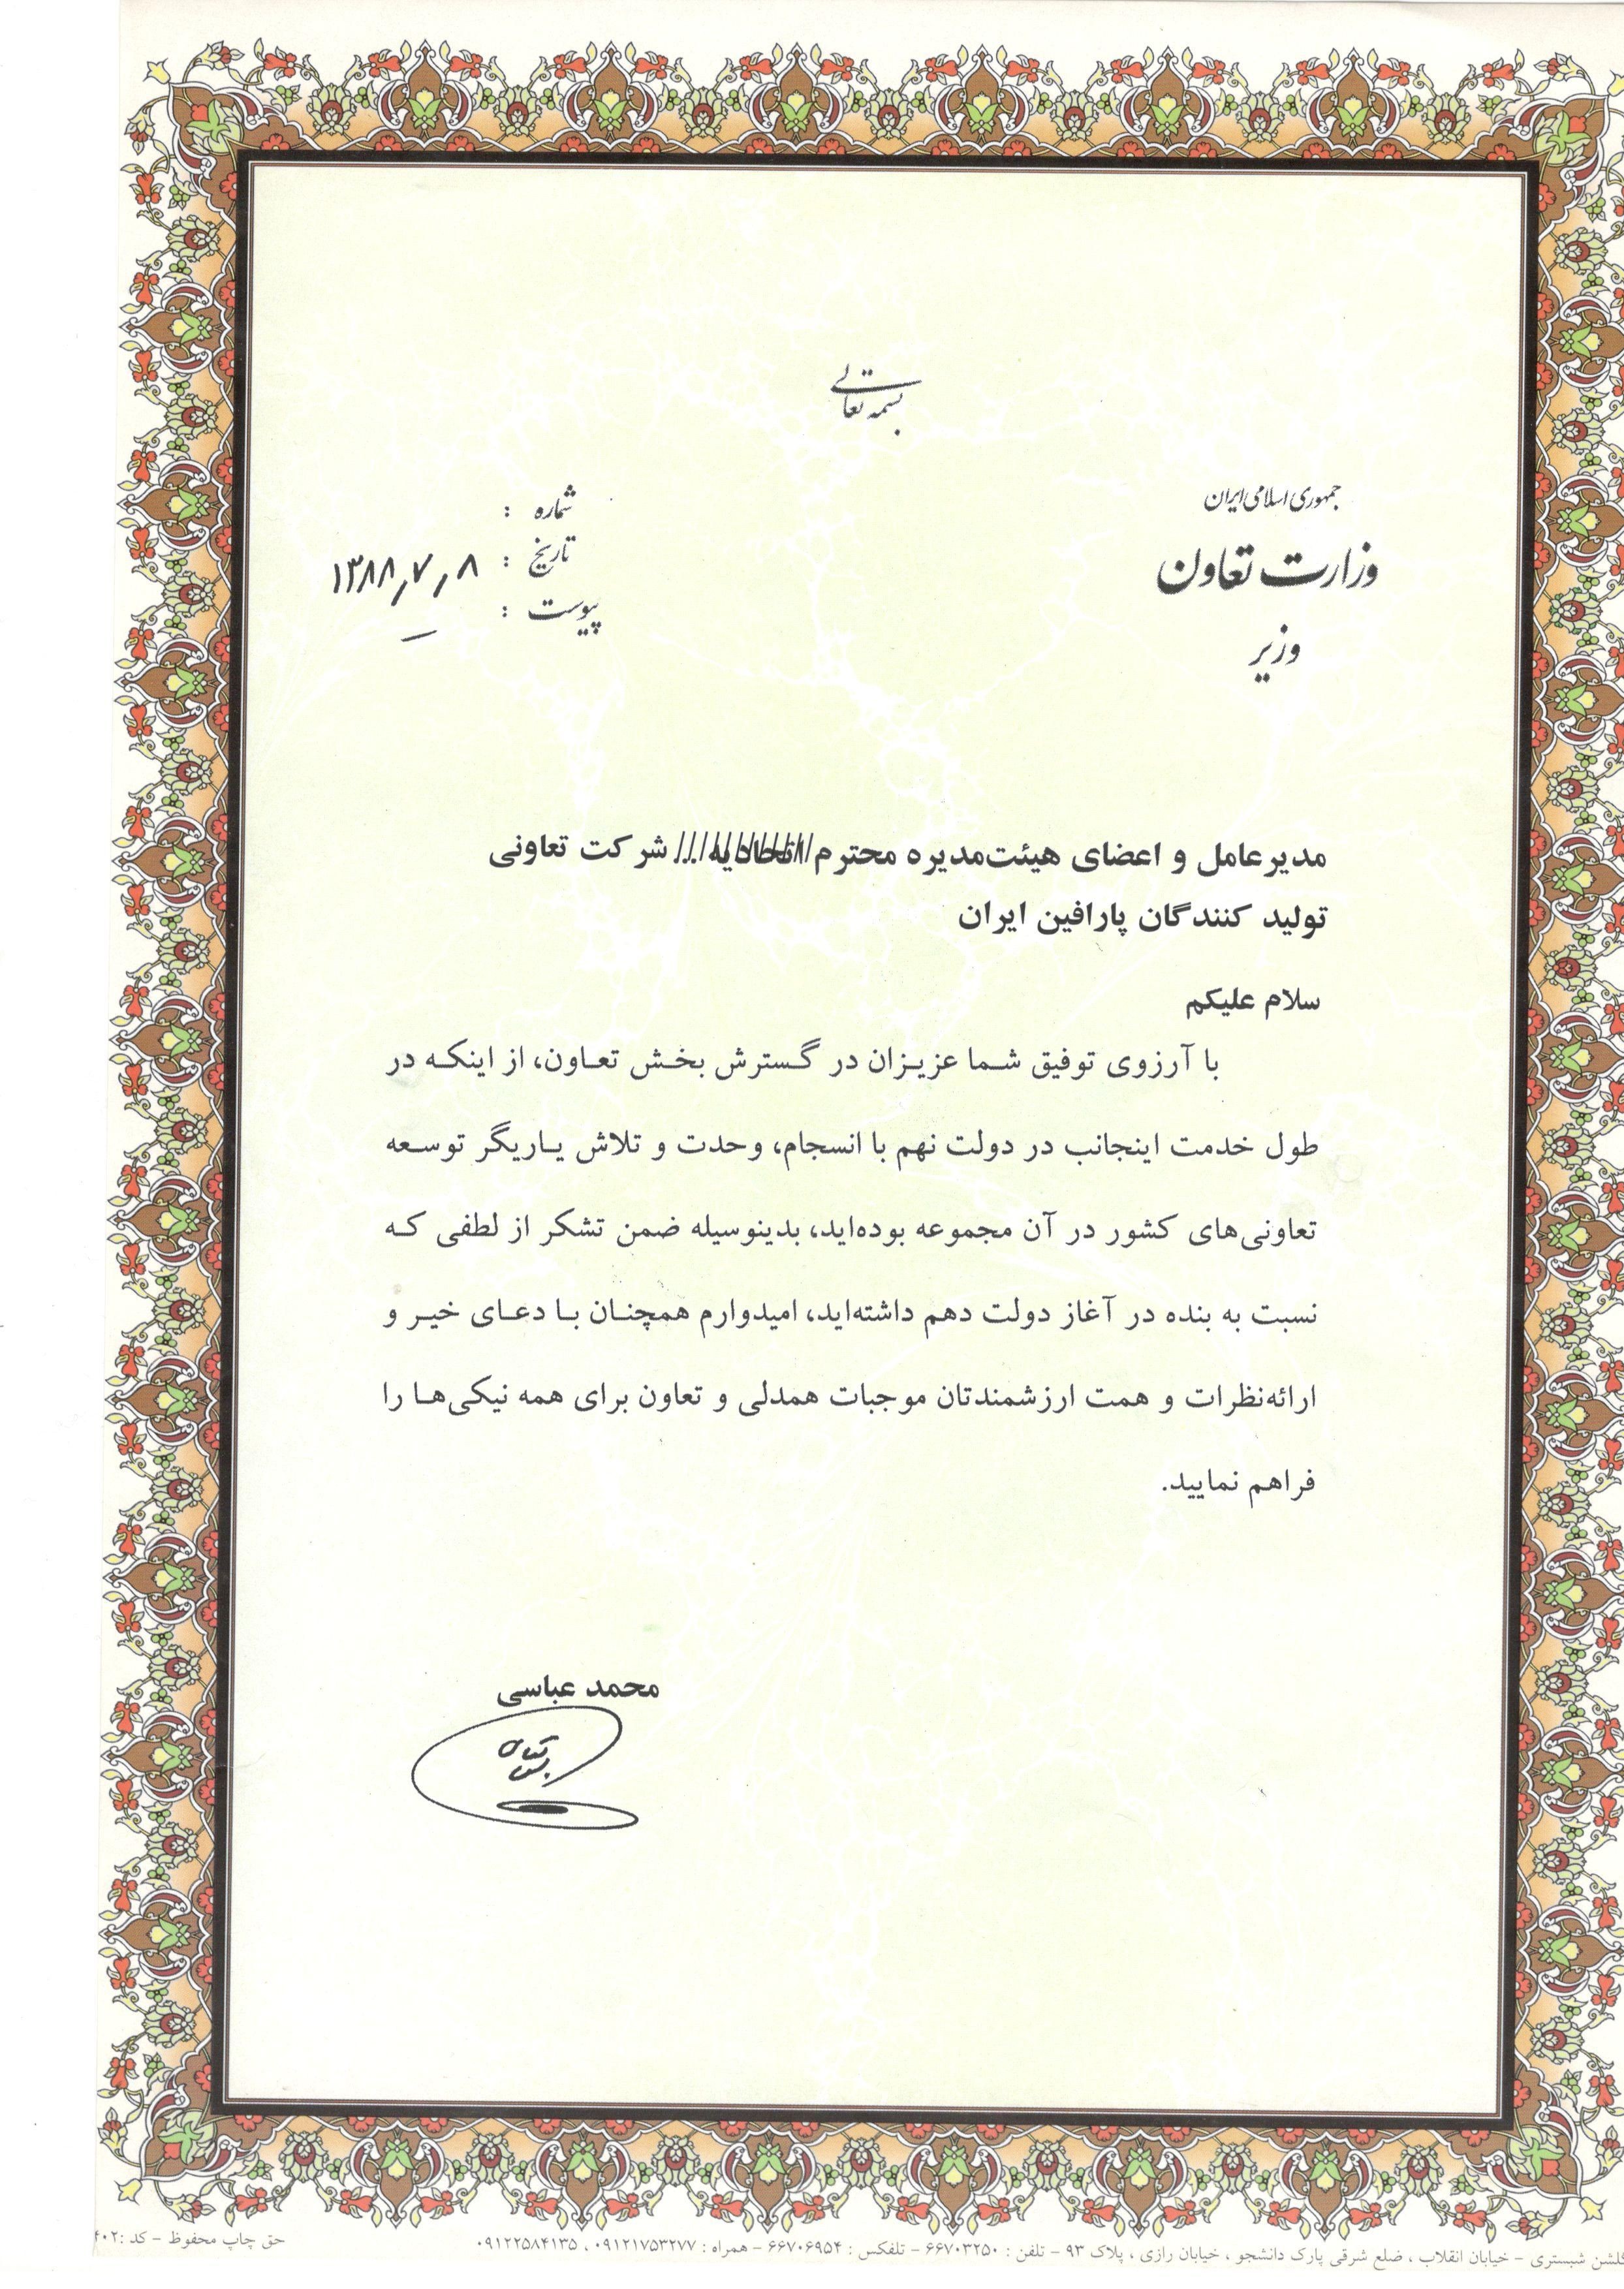 بسمه تعالی
جمهوری اسلامی ایران
وزارت تعاون
وزیر
شماره :
تاریخ : ۱۳۸۸٫۷٫۸
پیوست : –
مدیرعامل و اعضای هیئت‌مدیره محترم اتحادیه... شرکت تعاونی
تولید کنندگان پارافین ایران
سلام علیکم
با آرزوی توفیق شما عزیزان در گسترش بخش تعاون، از اینکه در
طول خدمت اینجانب در دولت نهم با انسجام، وحدت و تلاش یاریگر توسعه
تعاونی‌های کشور در آن مجموعه بوده‌اید، بدینوسیله ضمن تشکر از لطفی که
نسبت به بنده در آغاز دولت دهم داشته‌اید، امیدوارم همچنان با دعای خیر و
ارائه‌نظرات و همت ارزشمندتان موجبات همدلی و تعاون برای همه نیکی‌ها را
فراهم نمایید.
محمد عباسی
گلشن شبستری – خیابان انقلاب ، ضلع شرقی پارک دانشجو ، خیابان رازی ، پلاک ۹۳ – تلفن : ۶۶۷۰۳۲۵۰ – تلفکس : ۶۶۷۰۶۹۵۴ – همراه : ۰۹۱۲۱۷۵۳۲۷۷ ، ۰۹۱۲۲۵۸۴۱۳۵
حق چاپ محفوظ – کد :۴۰۲